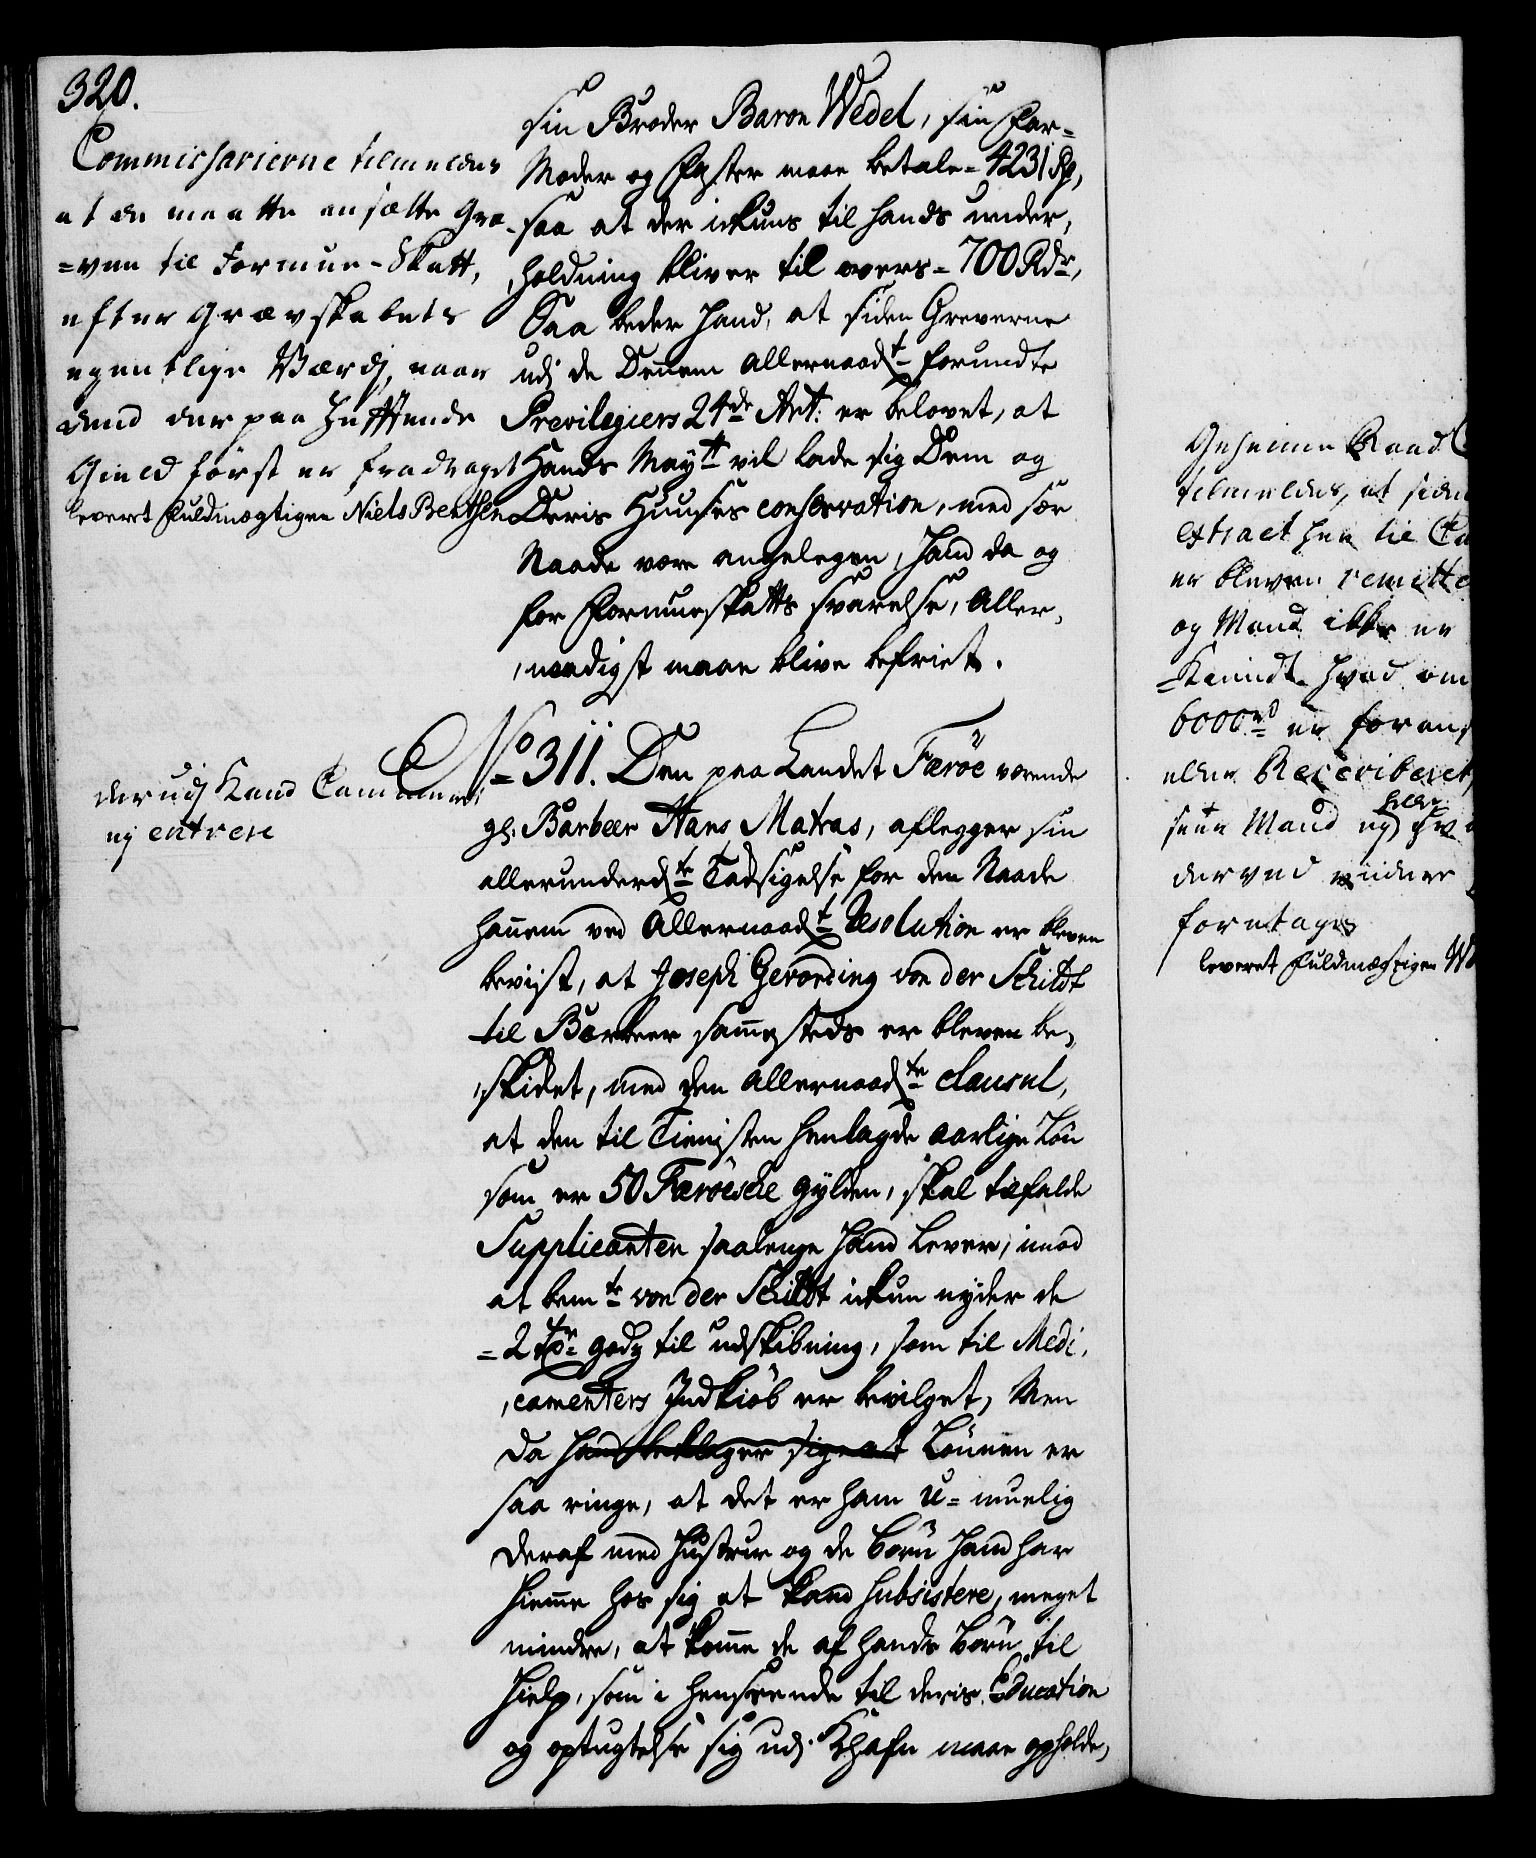 320.
Commissarierne tilmeldes
at de maatte ansætte Gra-
=ven til Formue-Skatt,
efter Grævskabets
egentlige Værdj, naar
dend der paa hæfftende
Gield først er fradraget
leveret Fuldmægtigen Niels Benthen
sin Broder Baron Wedel, sin Far=
Moder og Faster maae betale = 4231 Rd,
saa at der ickuns til hands under,
,holdning bliver til overs = 700 Rdr,
Saa beder hand, at siden Greverne
udj de Dennem Allernaadt forundte
Previlegiers 24de Art: er belovet, at
Hands Maytt vil lade sig Dem og
Deris Huuses conservation, med sær
Naade være angelegen, hand da og
for Formueskatts svarelse, Aller,
,naadigst maae blive befriet.
derudj Kand Cammeret
ej entrere
No 311. Den paa Landet Færöe værende
gl. Barbeer Hans Matras, aflegger sin
allerunderdte Tacksigelse for den Naade
hannem ved Allernaadt Resolution er bleven
beviist, at Joseph Geronding von der Schildt
til Barbeer sammesteds er bleven be,
,skicket, med den allernaadte Clausul,
at den til Tienisten henlagde aarlige Lön
som er 50 Færöesche gylden, skal tilfalde
Supplicanten saalenge hand Lever, imod
at bemte von der Schildt ickun nyder de
= 2 Tdr godz til udskibning, som til Medi,
,camenters Indkiöb er bevilget, Men
da hand beklager sig at Lönnen er
saa ringe, at det er ham u=muelig
deraf med hustrue og de börn hand har
hiemme hos sig at kand subsistere, meget
mindre, at komme de af hands börn til
hielp, som i henseende til deris Education
og optugtelse sig udj Khafn maae opholde,
Geheime Raad
tilmeldes, at siden
extract hen til
er bleven remitte
og Mand ikke er
=Kiendt hvad om
6000 rd er foran
eller Rescriberet,
seer Mand ej heller
derved videre
foretages
leveret Fuldmægtigen